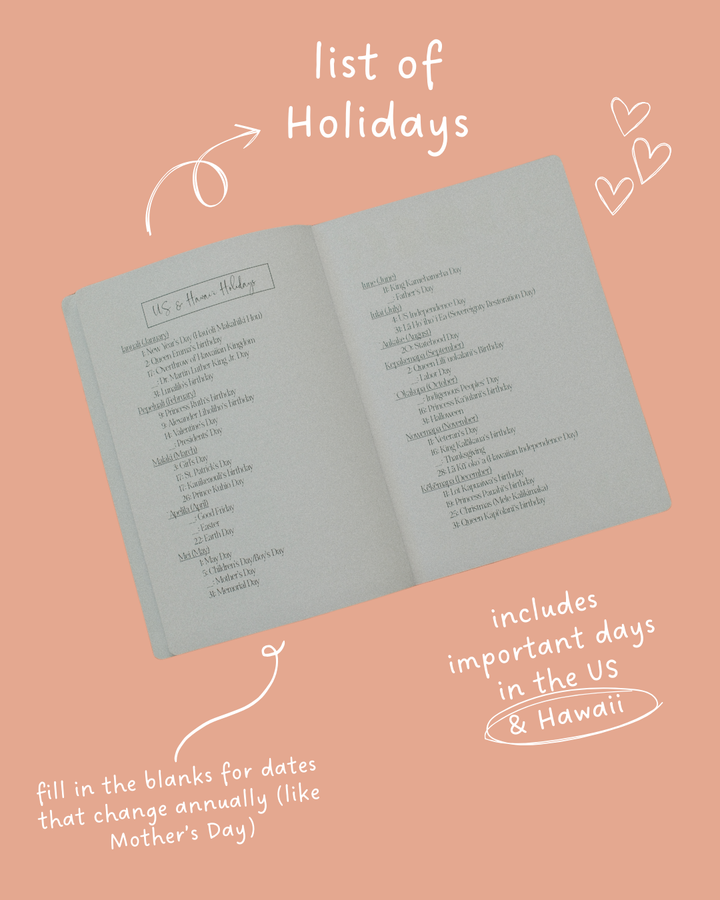 list of
Holidays
US & Hawaii Holidays
Ianuali (January)
1: New Year's Day (Hau'oli Makahiki Hou)
2: Queen Emma's birthday
17: Overthrow of Hawaiian Kingdom
__: Dr. Martin Luther King Jr. Day
31: Lunalilo's birthday
Pepeluali (February)
9: Princess Ruth's birthday
9: Alexander Liholiho's birthday
14: Valentine's Day
__: Presidents' Day
Malaki (March)
3: Girl's Day
17: St. Patrick's Day
17: Kauikeaouli's birthday
26: Prince Kuhio Day
Apelila (April)
__: Good Friday
__: Easter
22: Earth Day
Mei (May)
1: May Day
5: Children's Day/Boy's Day
__: Mother's Day
31: Memorial Day
Iune (June)
11: King Kamehameha Day
__: Father's Day
Iulai (July)
4: US Independence Day
31: Lā Ho'iho'i Ea (Sovereignty Restoration Day)
Aukake (August)
20: Statehood Day
Kepakemapa (September)
2: Queen Lili'uokalani's Birthday
__: Labor Day
'Okakopa (October)
__: Indigenous Peoples' Day
16: Princess Ka'iulani's birthday
31: Halloween
Nowemapa (November)
11: Veteran's Day
16: King Kalākaua's birthday
__: Thanksgiving
28: Lā Kū'oko'a (Hawaiian Independence Day)
Kēkēmapa (December)
11: Lot Kapuaiwa's birthday
19: Princess Pauahi's birthday
25: Christmas (Mele Kalikimaka)
31: Queen Kapi'olani's birthday
includes
important days
in the US
& Hawaii
fill in the blanks for dates
that change annually (like
Mother's Day)